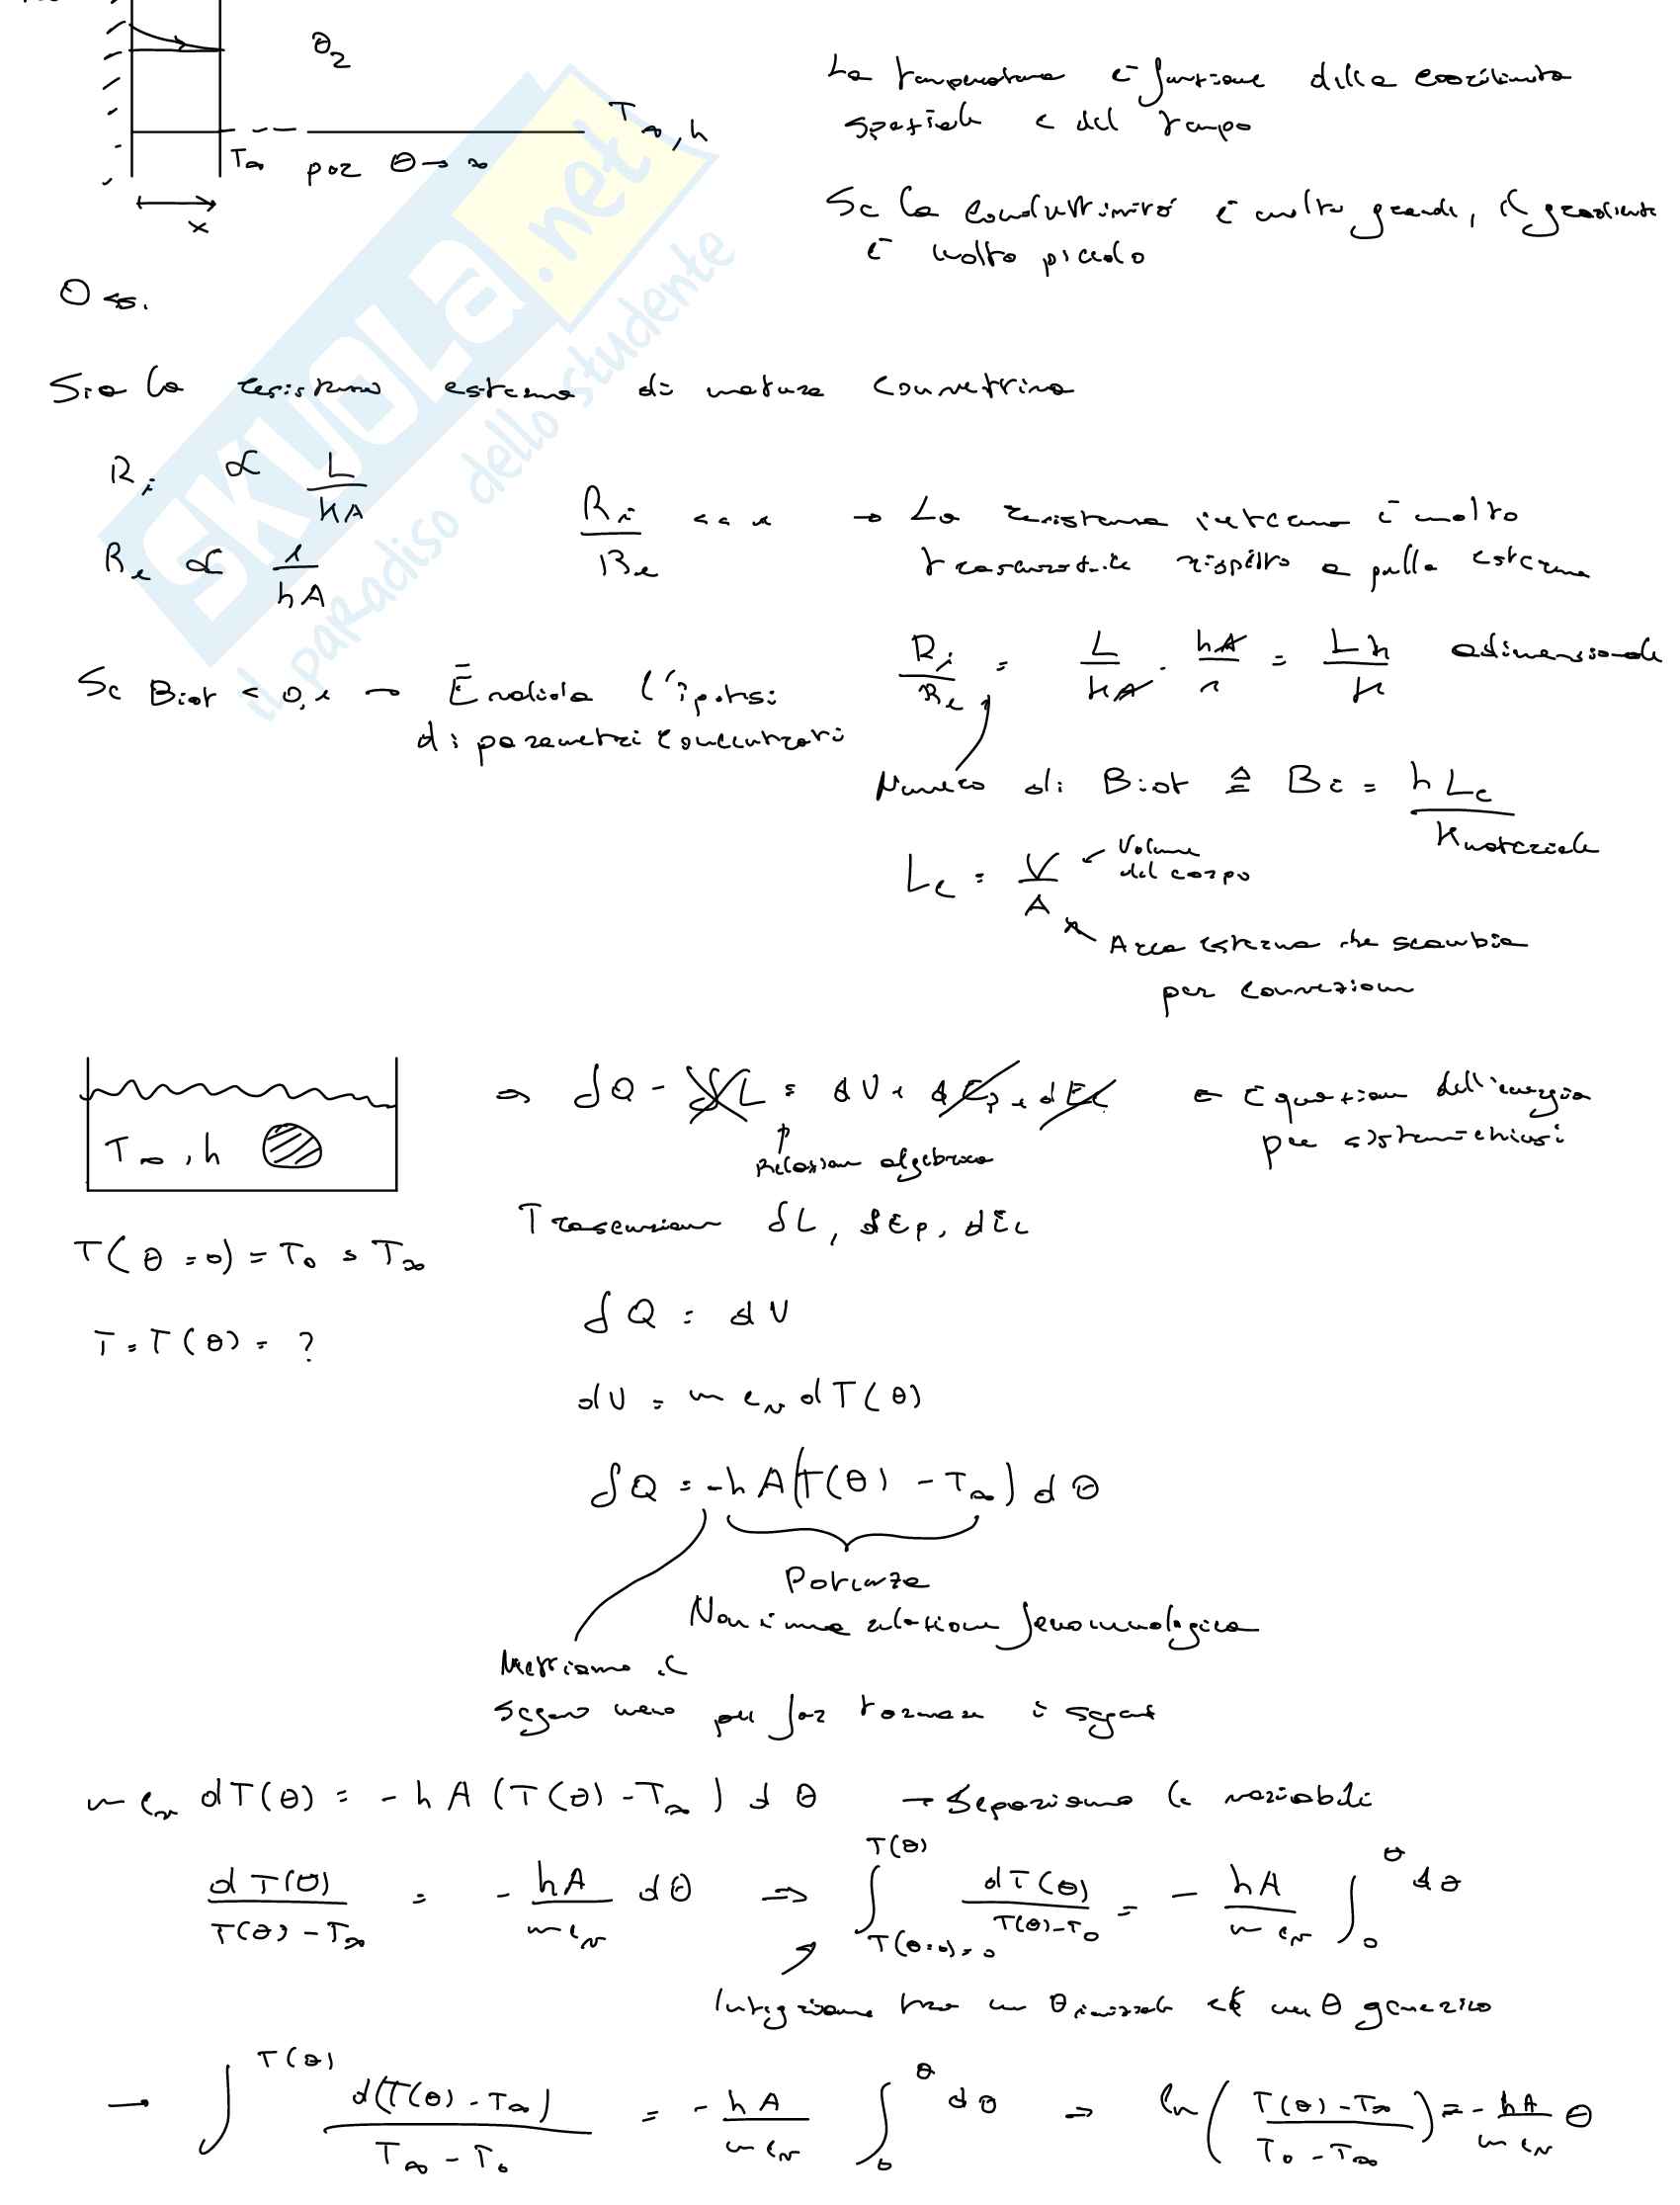 θ₂
T∞,h
T∞ per θ→∞
x
La temperatura è funzione delle coordinate
spaziale e del tempo
Se la conduttività è molto grande, il gradiente
è molto piccolo
Oss.
Sia la resistenza esterna di natura convettiva
Ri ∝ L/kA
Re ∝ 1/hA
Ri/Re <<1 → La resistenza interna è molto
trascurabile rispetto a quella esterna
Ri/Re = L/kA · hA/1 = Lh/k adimensionale
Se Biot < 0,1 → È valida l'ipotesi
di parametri concentrati
Numero di Biot ≜ Bi = hLc/Kmateriale
Lc = V/A
Volume
del corpo
Area esterna che scambia
per convezione
T∞,h
⇒ δQ - δL = dU + dEp + dEc ← Equazione dell'energia
per sistemi chiusi
Relazione algebrica
Trascuriamo δL, dEp, dEc
T(θ=0) = T₀ = T∞
T = T(θ) = ?
δQ = dU
dU = m cv dT(θ)
δQ = -hA(T(θ) - T∞) dθ
Potenza
Non è una relazione fenomenologica
Mettiamo il
segno meno per far tornare i segni
m cv dT(θ) = -hA (T(θ) - T∞) dθ → Separiamo le variabili
dT(θ)/(T(θ) - T∞) = - hA/(m cv) dθ ⇒ ∫_{T(θ=0)=0}^{T(θ)} dT(θ)/(T(θ)-T₀) = - hA/(m cv) ∫₀^θ dθ
Integriamo tra un θiniziale ed un θ generico
→ ∫^{T(θ)} d(T(θ) - T∞)/(T∞ - T₀) = - hA/(m cv) ∫₀^θ dθ ⇒ ln(T(θ) - T∞/T₀ - T∞) = - hA/(m cv) θ
SKUOLA.net
il paradiso dello studente